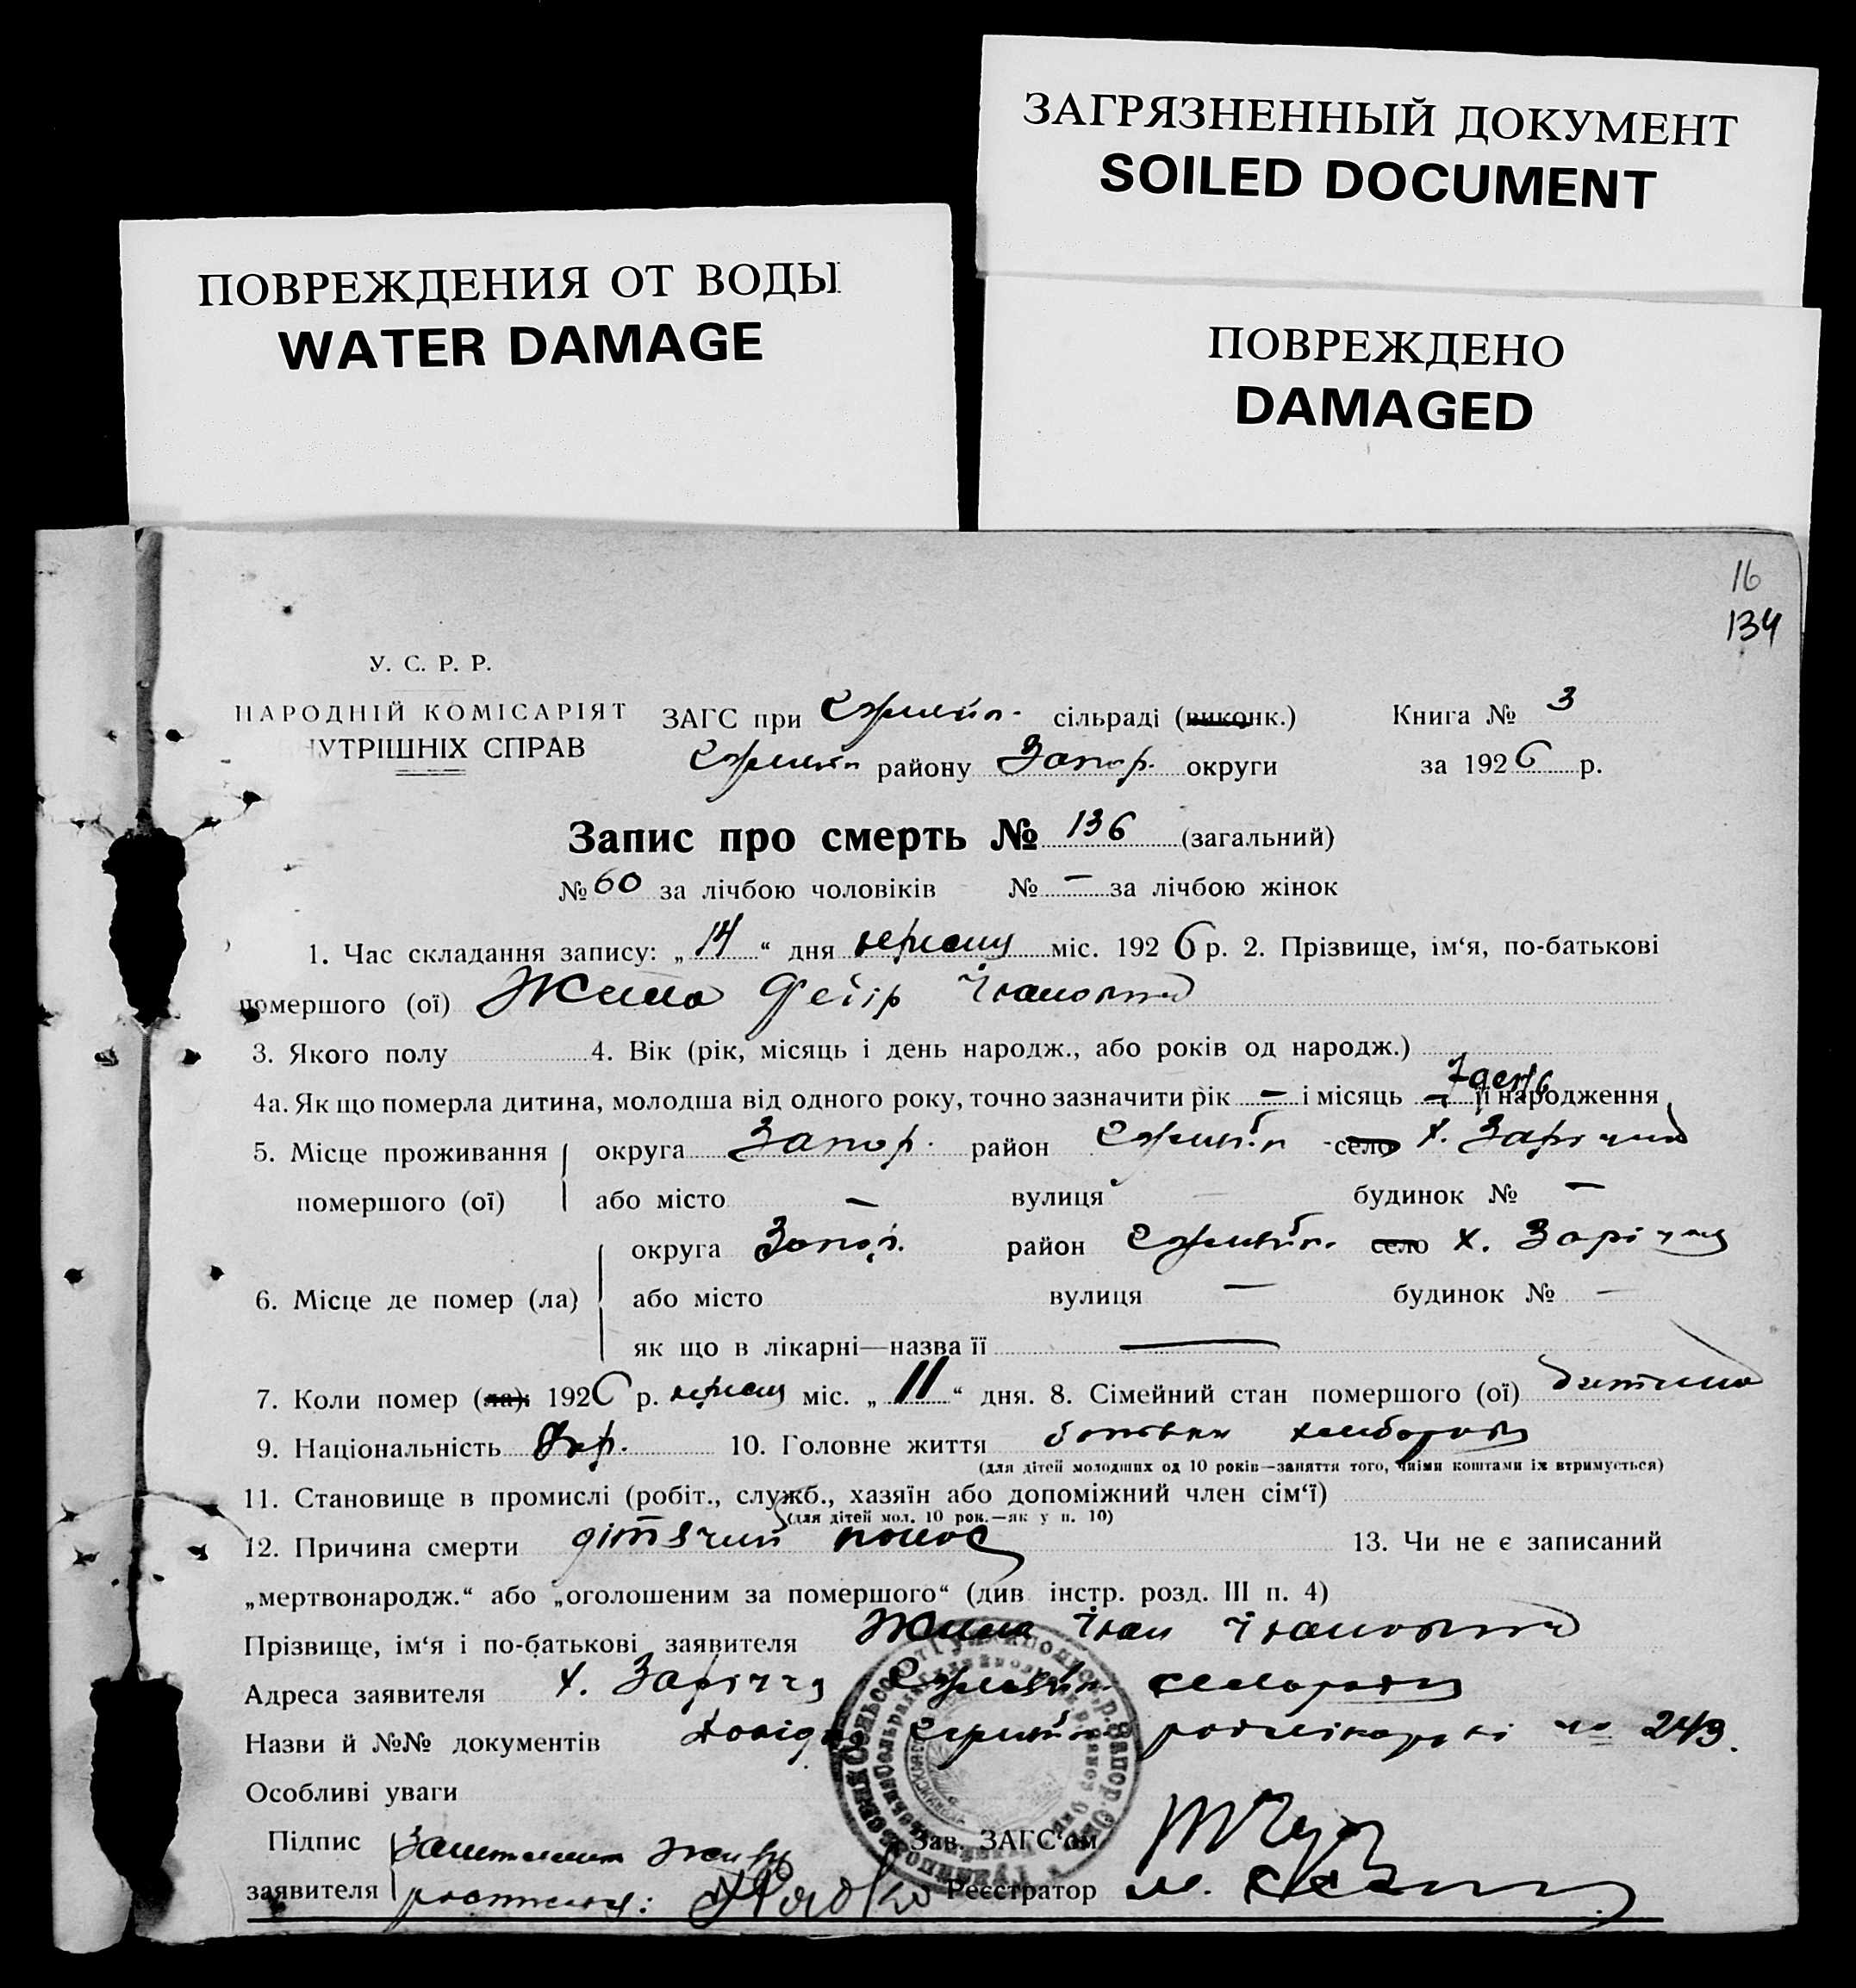 ЗАГРЯЗНЕННЫЙ ДОКУМЕНТ
SOILED DOCUMENT
ПОВРЕЖДЕНИЯ ОТ ВОДЫ
WATER DAMAGE
ПОВРЕЖДЕНО
DAMAGED
16
134
У. С. Р. Р.
НАРОДНІЙ КОМІСАРІЯТ ЗАГС при сільраді (виконк.) Книга № 3
НУТРІШНІХ СПРАВ району Запор. округи за 1926 р.
Запис про смерть № 136 (загальний)
№ 60 за лічбою чоловіків № — за лічбою жінок
1. Час складання запису: „14“ дня вересня міс. 1926 р. 2. Прізвище, ім‘я, по-батькові
помершого (ої) Жила Федір Іванович
3. Якого полу 4. Вік (рік, місяць і день народж., або років од народж.)
4а. Як що померла дитина, молодша від одного року, точно зазначити рік — і місяць — її народження
5. Місце проживання округа Запор. район село х.
помершого (ої) або місто — вулиця — будинок № —
округа Запор. район село х.
6. Місце де помер (ла) або місто вулиця — будинок № —
як що в лікарні—назва її —
7. Коли помер (ла): 1926 р. вересня міс. „11“ дня. 8. Сімейний стан помершого (ої) дитина
9. Національність Укр. 10. Головне життя батьки хлібороби
(для дітей молодших од 10 років—заняття того, чиїми коштами їх втримується)
11. Становище в промислі (робіт., служб., хазяїн або допоміжний член сім‘ї)
(для дітей мол. 10 рок.—як у п. 10)
12. Причина смерти дітячий понос 13. Чи не є записаний
„мертвонародж.“ або „оголошеним за помершого“ (див. інстр. розд. III п. 4)
Прізвище, ім‘я і по-батькові заявителя Жила Іван Іванович
Адреса заявителя х. Заріччя сільради
Назви й №№ документів № 249.
Особливі уваги
Підпис Зав. ЗАГС‘ом
заявителя Реєстратор